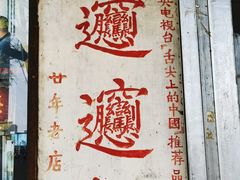 央电视台"舌尖上的中國推荐品
𰻞
𰻞
廿年老店